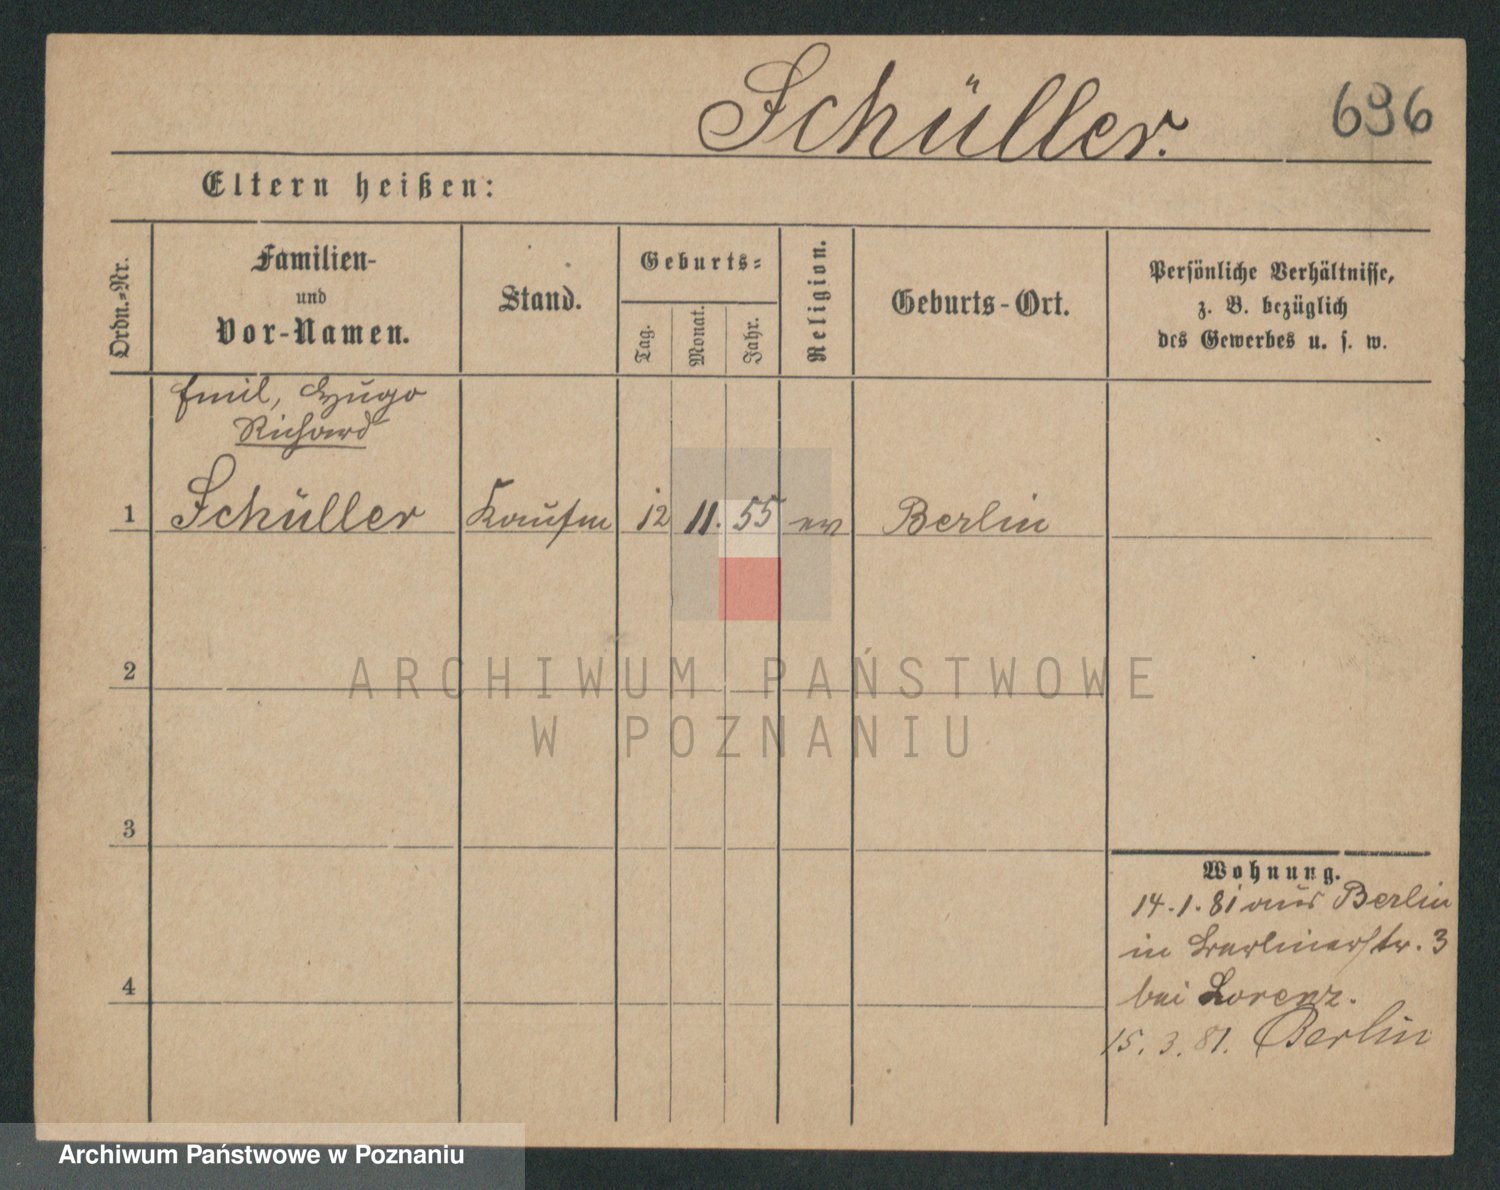 Schüller.
696
Eltern heißen:
Ordn.-Nr.
Familien-
und
Vor-Namen.
Stand.
Geburts-
Tag.
Monat.
Jahr.
Religion.
Geburts-Ort.
Persönliche Verhältnisse,
z. B. bezüglich
des Gewerbes u. s. w.
Emil, Hugo
Richard
1 Schüller Kaufm 12 11. 55 ev Berlin
2
3
4
Wohnung.
14.1.81 aus Berlin
in Berlinerstr. 3
bei Lorenz.
15.3.81. Berlin
ARCHIWUM PAŃSTWOWE
W POZNANIU
Archiwum Państwowe w Poznaniu